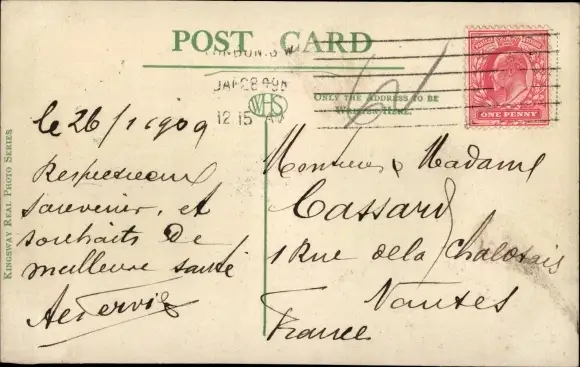 POST CARD
LONDON.S.W
JA 28 09
12 15 AM
WHS
ONLY THE ADDRESS TO BE
WRITTEN HERE.
ONE PENNY
KINGSWAY REAL PHOTO SERIES
le 26/1 1909
Respectueux
souvenir, et
souhaits de
meilleure santé
Monsieur & Madame
Cassard
1 Rue de la Chalotais
Nantes
France